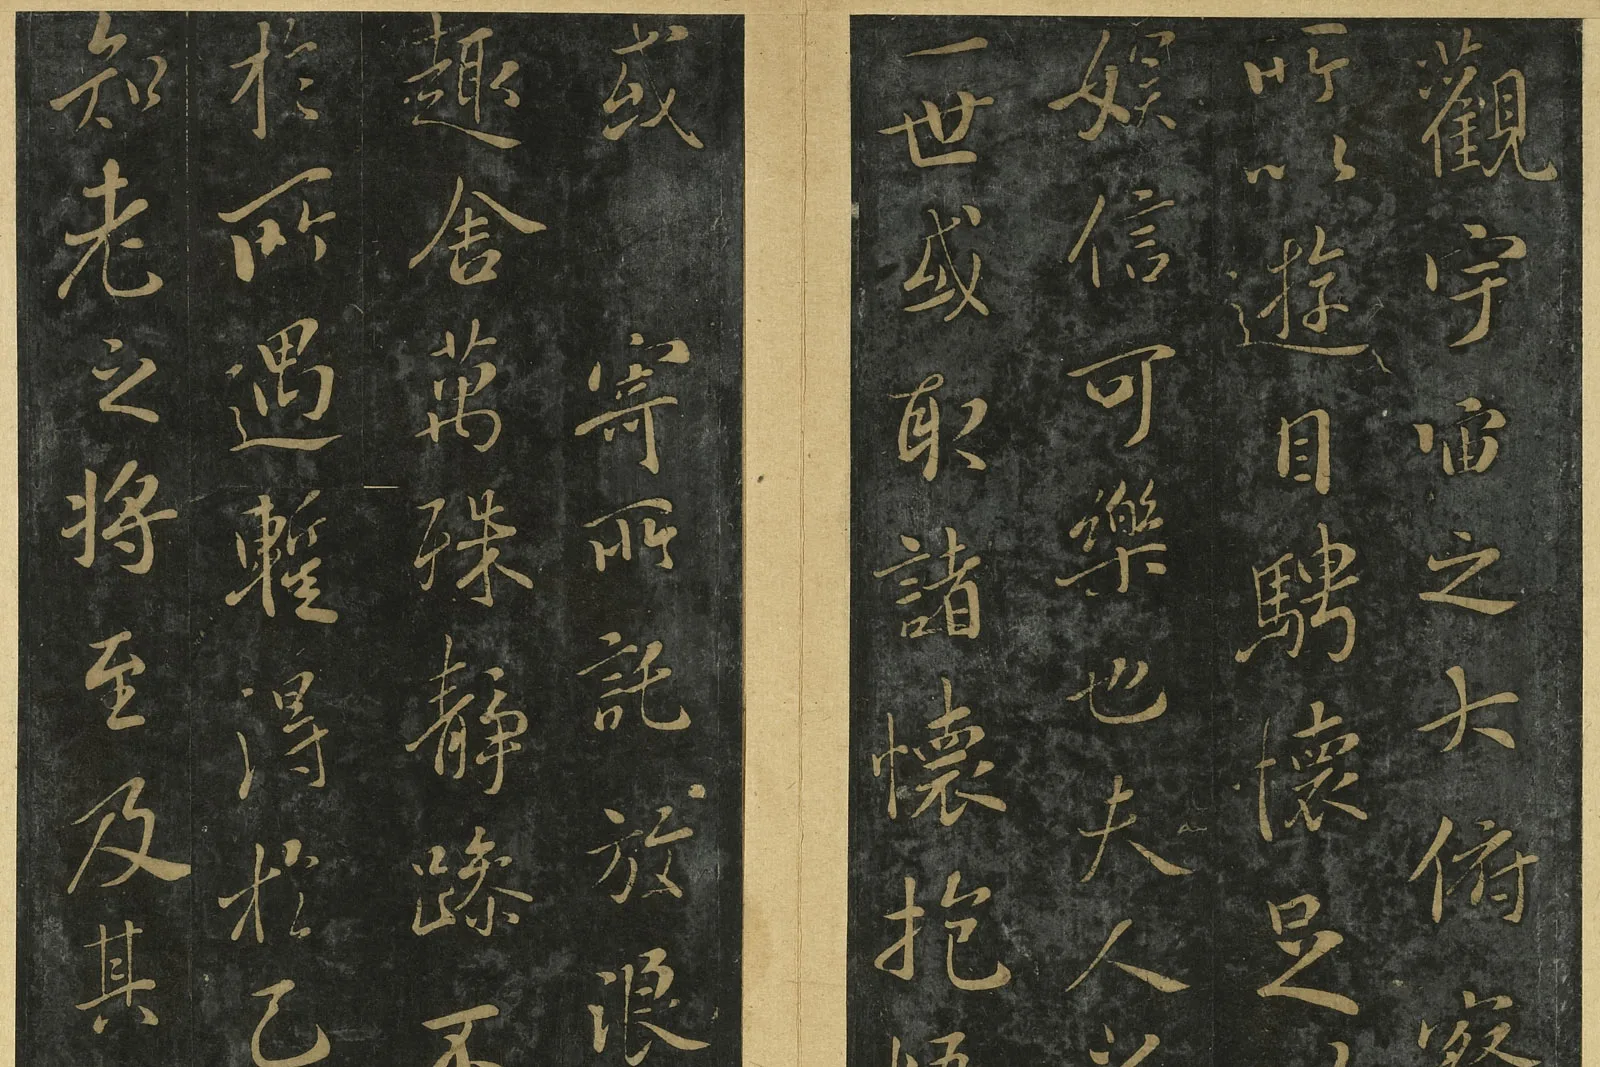 觀宇宙之大俯察
所以遊目騁懷足以
娛信可樂也夫人之
一世或取諸懷抱悟
或寄所託放浪
趣舍萬殊靜躁不
於所遇暫得於己
知老之將至及其